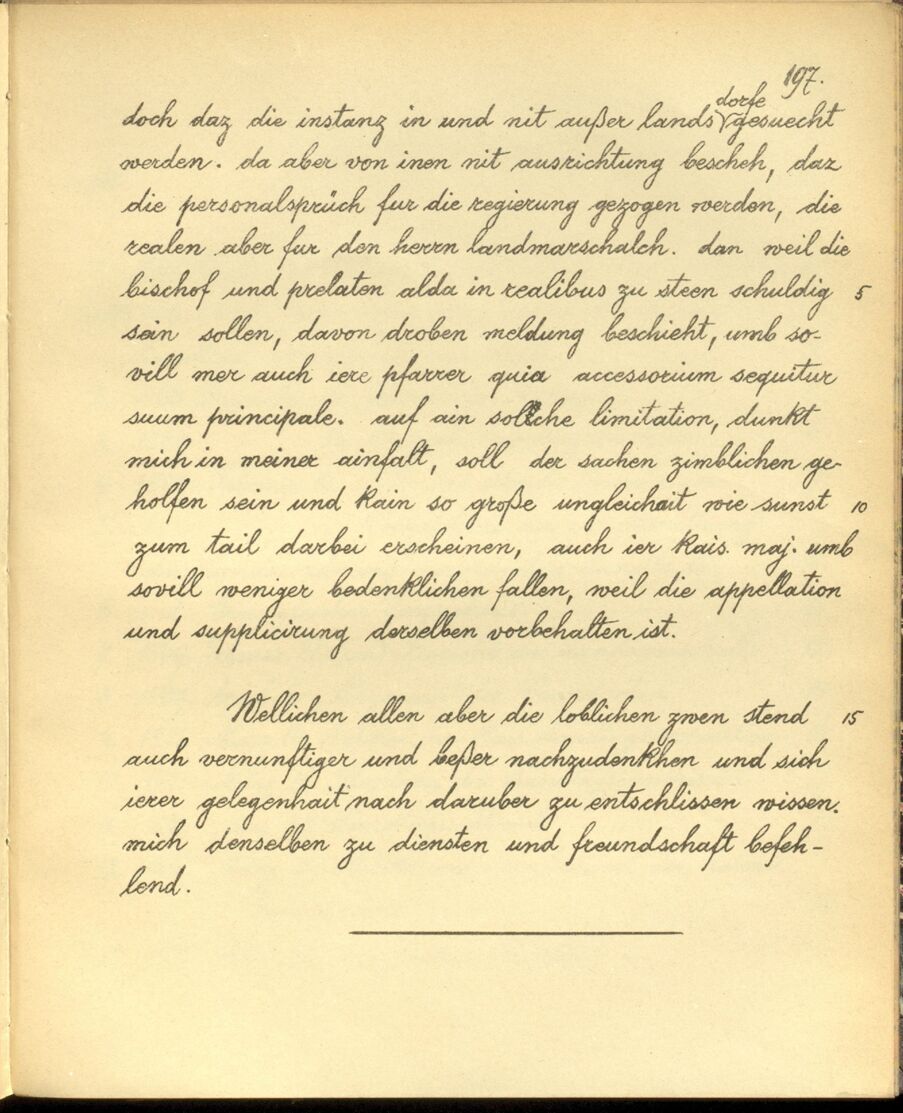 197.
doch daz die instanz in und nit außer lands dorfe gesuecht
werden. da aber von inen nit ausrichtung bescheh, daz
die personalsprüch fur die regierung gezogen werden, die
realen aber fur den herrn landmarschalch. dan weil die
bischof und prelaten alda in realibus zu steen schuldig 5
sein sollen, davon droben meldung beschieht, umb so-
vill mer auch iere pfarrer quia accessorium sequitur
suum principale. auf ain solche limitation, dunkt
mich in meiner ainfalt, soll der sachen zimblichen ge-
holfen sein und kain so große ungleichait wie sunst 10
zum tail darbei erscheinen, auch ier kais. maj. umb
sovill weniger bedenklichen fallen, weil die appellation
und supplicirung derselben vorbehalten ist.
Wellichen allen aber die loblichen zwen stend 15
auch vernunftiger und beßer nachzudenkhen und sich
ierer gelegenhait nach daruber zu entschlissen wissen.
mich denselben zu diensten und freundschaft befeh-
lend.